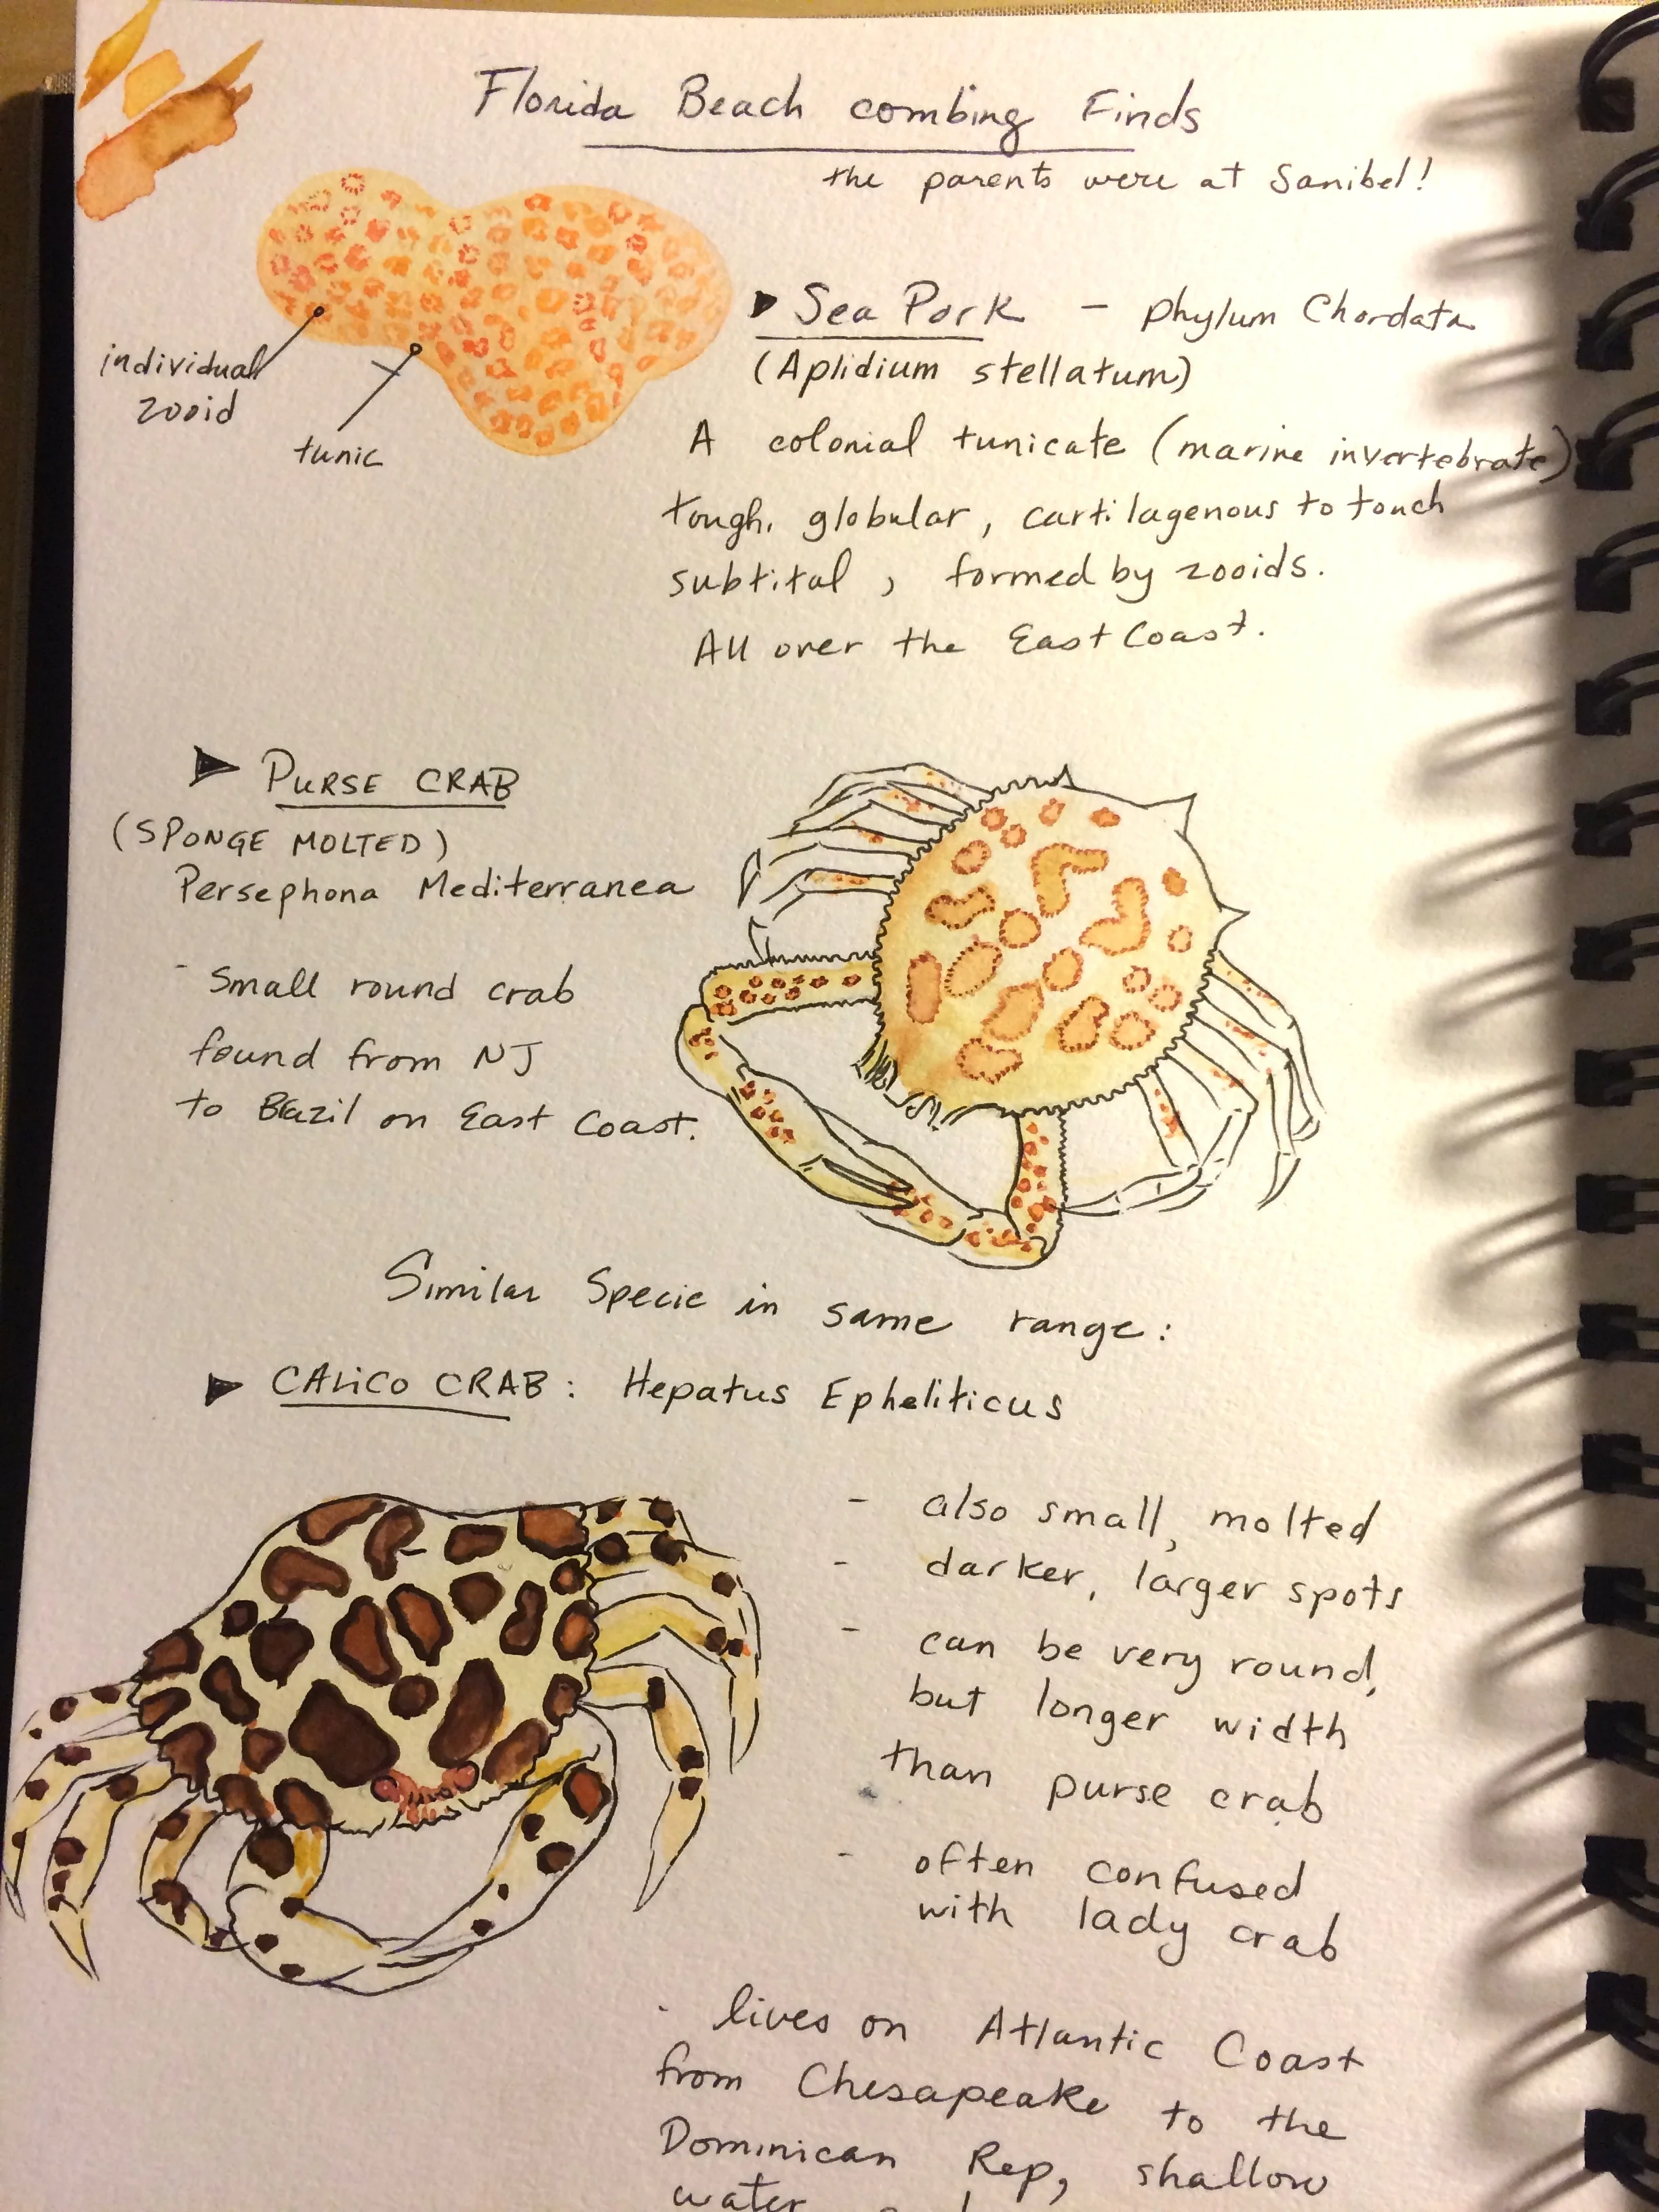 Florida Beach combing Finds
the parents were at Sanibel!
Sea Pork - Phylum Chordata
(Aplidium stellatum)
individual
zooid
tunic
A colonial tunicate (marine invertebrate)
tough, globular, cartilagenous to touch
subtital, formed by zooids.
All over the East Coast.
PURSE CRAB
(SPONGE MOLTED)
Persephona Mediterranea
- Small round crab
found from NJ
to Brazil on East Coast.
Similar Specie in same range:
CALiCO CRAB: Hepatus Epheliticus
- also small, molted
- darker, larger spots
- can be very round,
but longer width
than purse crab
- often confused
with lady crab
- lives on Atlantic Coast
from Chesapeake to the
Dominican Rep, shallow
water